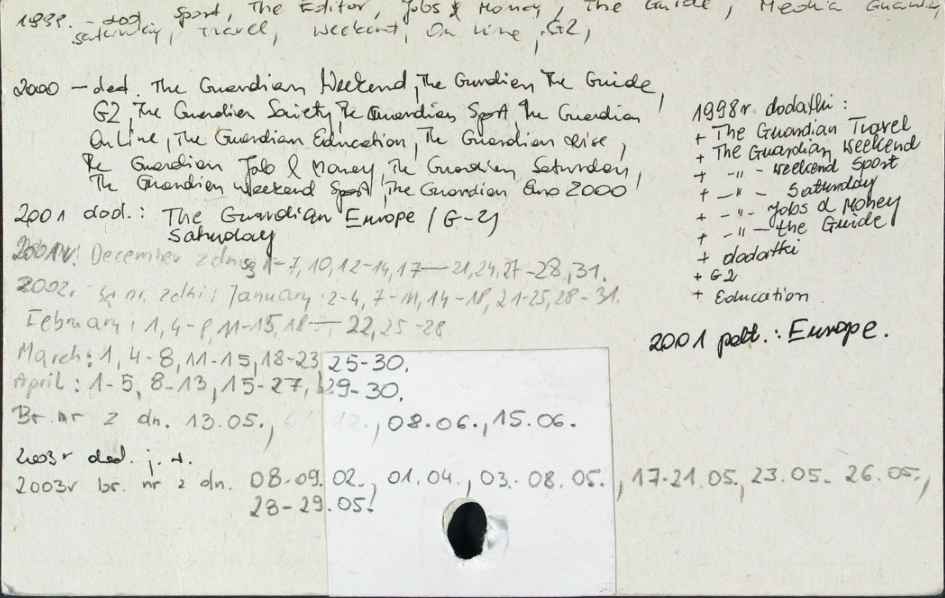 1999r. - dod. Sport, The Editor, Jobs & Money, The Guide, Media Guardian
Saturday, Travel, Weekend, On line, G2,
2000 - dod. The Guardian Weekend, The Guardian The Guide,
G2, The Guardian Society, The Guardian Sport, The Guardian
OnLine, The Guardian Education, The Guardian
The Guardian Job & Money, The Guardian Saturday,
The Guardian Weekend Sport, The Guardian Euro 2000
2001 dod.: The Guardian Europe / G-2)
Saturday
1998r. dodatki:
+ The Guardian Travel
+ The Guardian Weekend
+ -"- Weekend Sport
+ -"- Saturday
+ -"- Jobs & Money
+ -"- the Guide
+ dodatki
+ G2
+ Education
2001 : Europe.
2001r.: December z dnia 1-7, 10, 12-14, 17-21, 24, 27-28, 31.
2002r. są nr. : January: 2-4, 7-11, 14-18, 21-25, 28-31.
February: 1, 4-8, 11-15, 18-22, 25-28
March: 1, 4-8, 11-15, 18-23, 25-30.
April: 1-5, 8-13, 15-27, 29-30.
Br. nr z dn. 13.05., 08.06., 15.06.
2003r dod. j.w.
2003r br. nr z dn. 08-09.02., 01.04., 03.-08.05., 17-21.05., 23.05. 26.05.,
28-29.05.